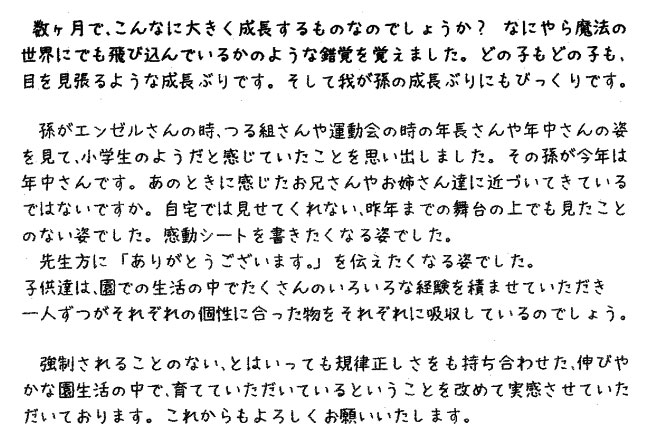 数ヶ月で、こんなに大きく成長するものなのでしょうか? なにやら魔法の
世界にでも飛び込んでいるかのような錯覚を覚えました。どの子もどの子も、
目を見張るような成長ぶりです。そして我が孫の成長ぶりにもびっくりです。
孫がエンゼルさんの時、つる組さんや運動会の時の年長さんや年中さんの姿
を見て、小学生のようだと感じていたことを思い出しました。その孫が今年は
年中さんです。あのときに感じたお兄さんやお姉さん達に近づいてきている
ではないですか。自宅では見せてくれない、昨年までの舞台の上でも見たこと
のない姿でした。感動シートを書きたくなる姿でした。
先生方に「ありがとうございます。」を伝えたくなる姿でした。
子供達は、園での生活の中でたくさんのいろいろな経験を積ませていただき
一人ずつがそれぞれの個性に合った物をそれぞれに吸収しているのでしょう。
強制されることのない、とはいっても規律正しさをも持ち合わせた、伸びや
かな園生活の中で、育てていただいているということを改めて実感させていた
だいております。これからもよろしくお願いいたします。